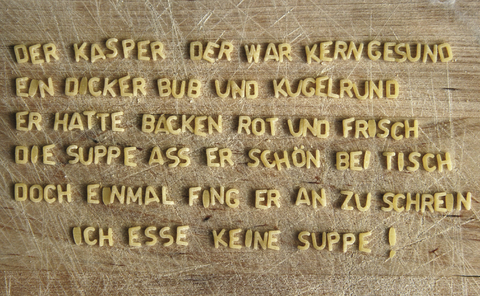 DER KASPER DER WAR KERNGESUND
EIN DICKER BUB UND KUGELRUND
ER HATTE BACKEN ROT UND FRISCH
DIE SUPPE ASS ER SCHÖN BEI TISCH
DOCH EINMAL FING ER AN ZU SCHREIN
ICH ESSE KEINE SUPPE !